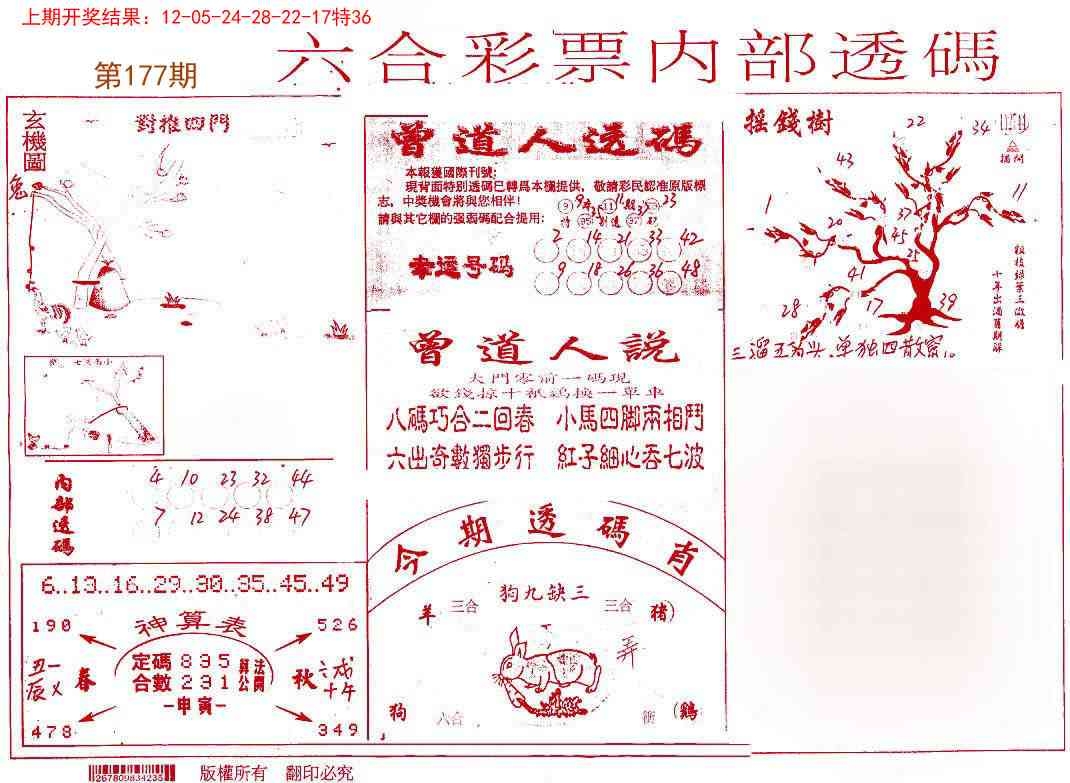 上期开奖结果：12-05-24-28-22-17特36
第177期
六合彩票内部透碼
玄機圖
對推四門
兔
曾道人送碼
本報獲國際刊號:
現背面特别透碼已轉爲本欄提供，敬請彩民認准原版標
志，中獎機會將與您相伴！
請與其它欄的强弱碼配合提用:
幸运号码
2 14 21 33 42
9 18 26 36 48
摇錢樹
22
34
43
11
1
20
37
45
25
41
28
17
39
曾道人説
大門零前一碼現
八碼巧合二回春 小馬四脚兩相鬥
六出奇數獨步行 紅子細心吞七波
内部透碼
4 10 23 32 44
7 12 24 38 47
6..13..16..29..30..35..45..49
神算表
190
526
478
349
定碼 835
合數 231
算法公開
一申寅一
丑一
辰
春
秋
今期透碼肖
狗九缺三
羊 三合
三合 猪)
弄
狗 六合
衝 (鷄)
267809834235
版權所有 翻印必究